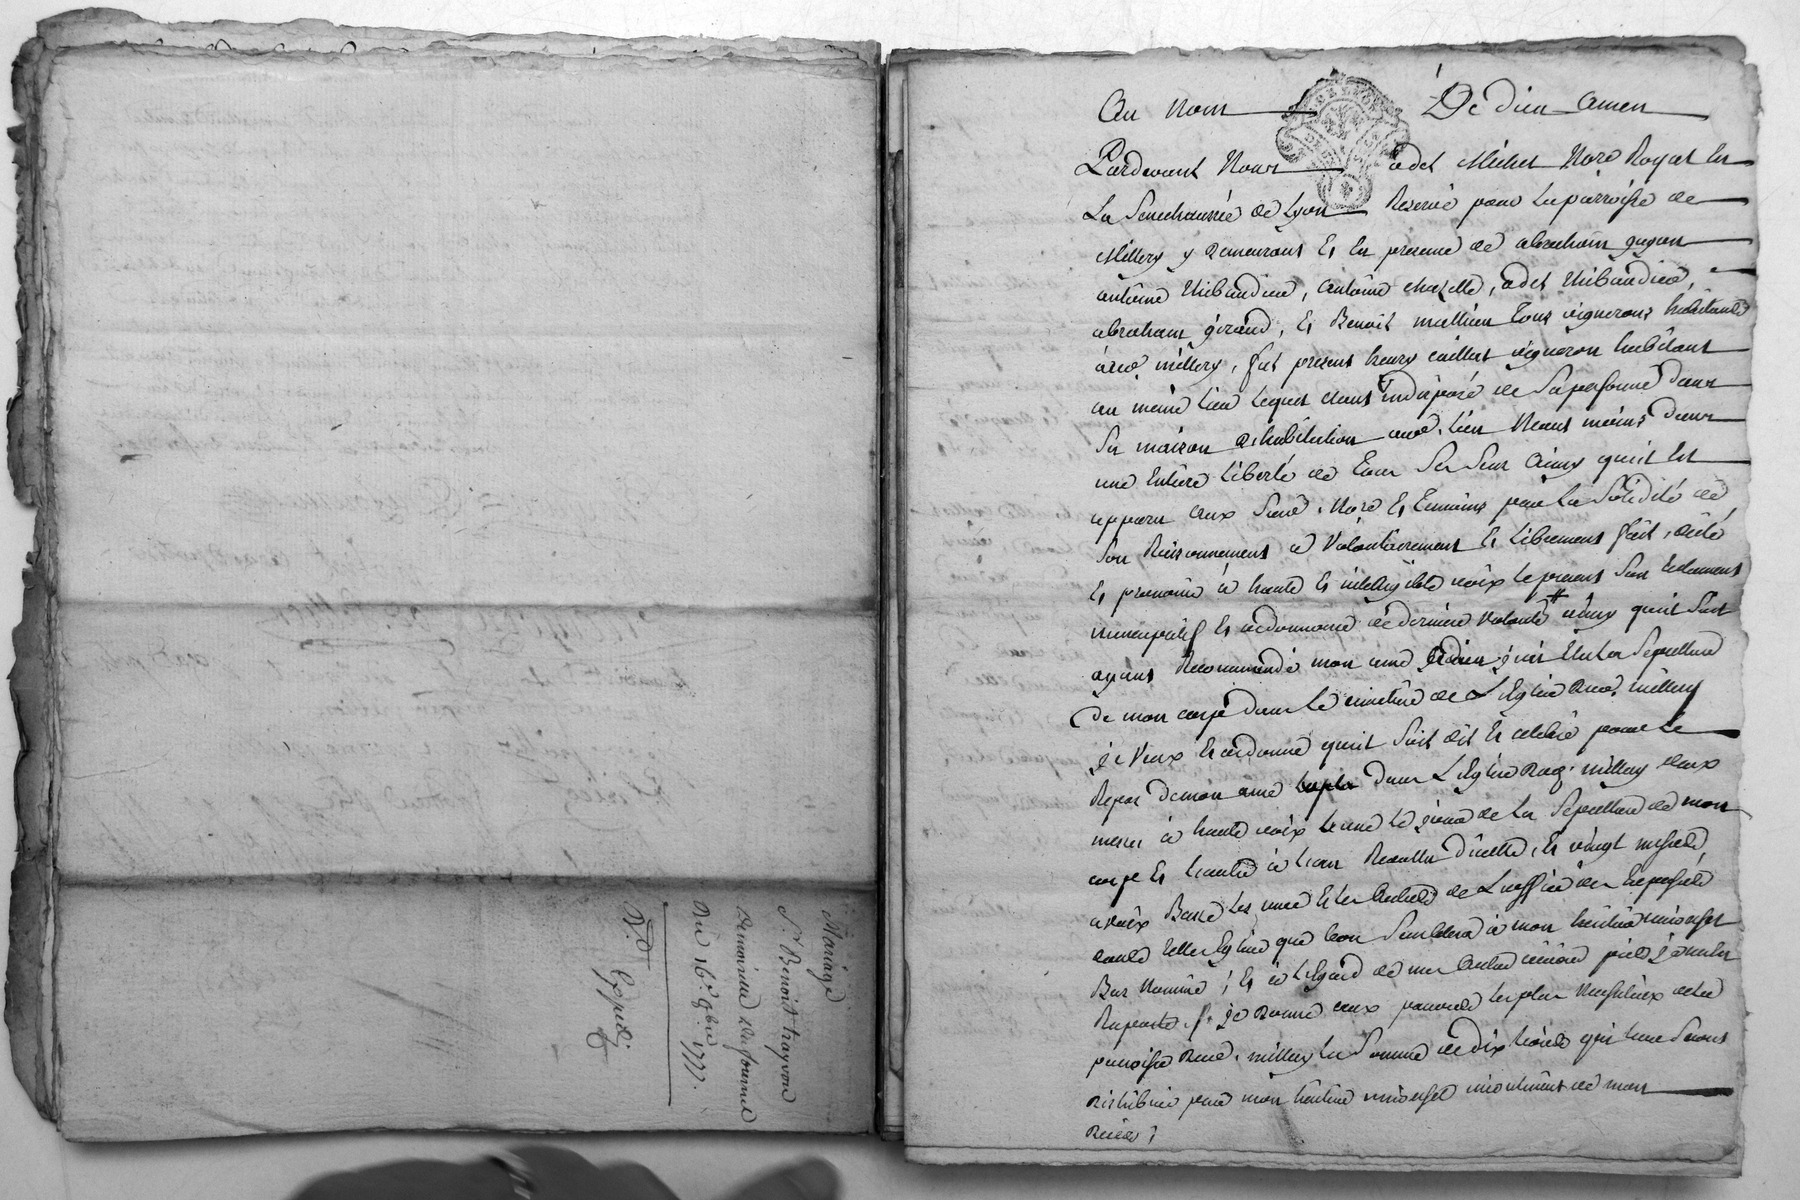 Mariage
Sr. Benoist trayvou
Demoiselle
Du 16e. 9bre. 1777.
Expedié
Au Nom De dieu amen
Pardevant Nous odet Michel Nore Royal En
La Senechaussée de Lyon Reservé pour La parroisse de
Millery y demeurant Et En presence de abraham guyon
antoine thibaudier, antoine chazelle, odet thibaudier,
abraham giraud, Et Benoit mathieu tous vignerons habitants
dud. millery, fut present henry caillet vigneron habitant
au meme Lieu Lequel etant indisposé de Sa personne dans
Sa maison d'habitation aud. Lieu Neant moins dans
une Entiere Liberté de tous Ses Sens Ainsy qu'il Est
apparu aux Susd. Nore Et temoins par La Solidité de
Son Raisonnement a volontairement Et Librement fait, dicté
Et prononcé à haute Et intelligible voix Le present Son testament
nuncupatif Et ordonnance de derniere volonté ainsy qu'il Suit
ayant Recommandé mon ame à dieu j'ai Elu La Sepulture
De mon corps dans Le cimetiere de L'Eglise dud. millery
je veux Et ordonne qu'il Soit dit Et celebré pour Le
Repos De mon ame dans L'Eglise dud. millery deux
messes à haute voix L'une Le jour de La Sepulture de mon
corps Et L'autre à L'an Revolu d'icelle, Et vingt messes
a voix Basse Les unes Et Les Autres de L'office des trepassés
dans telle Eglise que bon Semblera à mon heritier universel
Bas Nommé; Et à L'Egard de mes Autres oeuvres pies je m'en
Rapporte. je donne aux pauvres Les plus Necessiteux de La
parroisse dud. millery La Somme de dix Livres qui Leur Seront
distribués par mon heritier universel incontinent de mon
Deces;